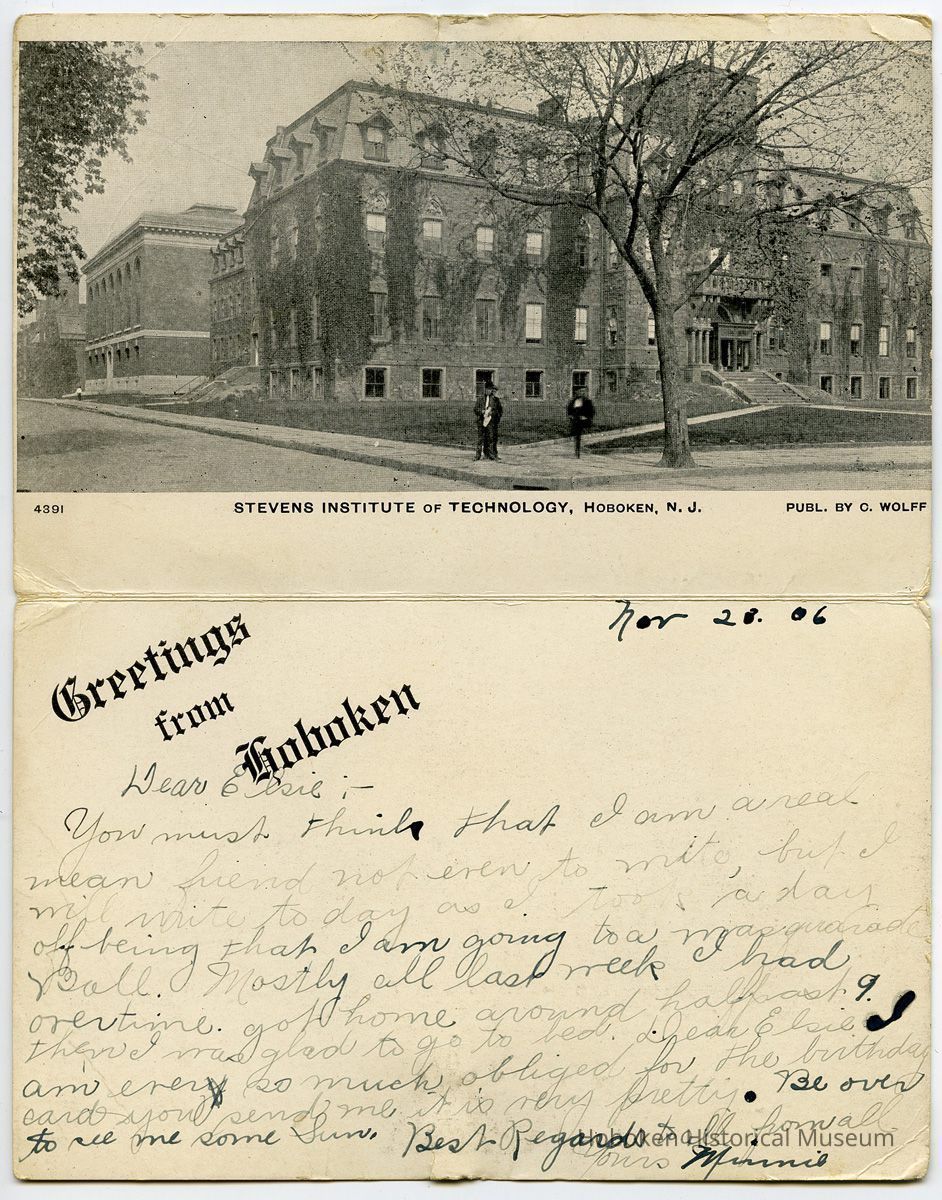 4391
STEVENS INSTITUTE OF TECHNOLOGY, HOBOKEN, N. J.
PUBL. BY C. WOLFF
Greetings
from
Hoboken
Nov 28. 06
Dear Elsie;-
You must think that I am a real
mean friend not even to write, but I
will write to day as I took a day
off being that I am going to a masquarade
Ball. Mostly all last week I had
overtime. got home around halfpast 9.
then I was glad to go to bed. Dear Elsie I
am every so much obliged for the birthday
card you send me it is very pretty. Be over
to see me some Sun. Best Regards to all from all
Yours Minnie
Hoboken Historical Museum